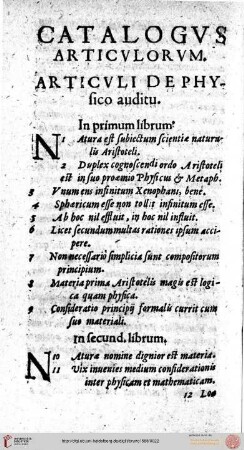 CATALOGVS
ARTICVLORVM.
ARTICVLI DE PHY-
sico auditu.
In primum librum.
N 1 Atura est subiectum scientiæ natura-
lis Aristoteli.
2 Duplex cognoscendi ordo Aristoteli
est in suo proæmio Physicus & Metaph.
3 Vnum ens infinitum Xenophani, bene.
4 Sphæricum esse non tollit infinitum esse.
5 Ab hoc nil effluit, in hoc nil influit.
6 Licet secundum multas rationes ipsum acci-
pere.
7 Non necessariò simplicia sunt compositorum
principium.
8 Materia prima Aristotelis magis est logi-
ca quam physica.
9 Consideratio principij formalis currit cum
suo materiali.
In secund. librum.
N 10 Aturæ nomine dignior est materia.
11 Vix inuenies medium considerationis
inter physicam et mathematicam.
12 Loo